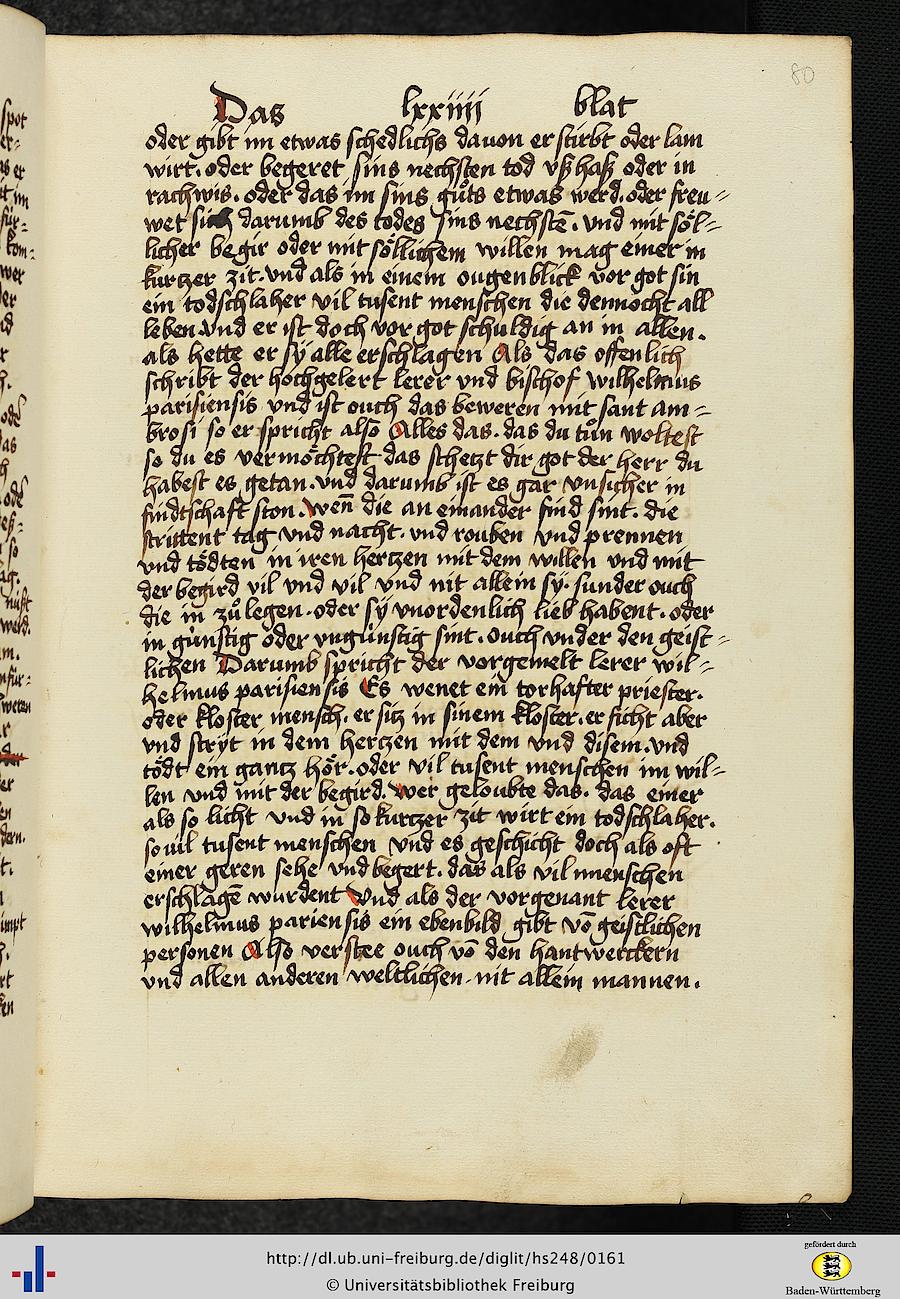 80
Das lxxiiii blat
oder gibt im etwas schedlichs dauon er stirbt oder lam
wirt. oder begeret sins nechsten tod vß haß oder in
rachwis. oder das im sins gůts etwas werd. oder freu⸗
wet sich darumb des todes sins nechstē. vnd mit söl⸗
licher begir oder mit söllichem willen mag einer in
kurtzer zit. vnd als in einem ougenblick vor got sin
ein todschlaher vil tusent menschen die dennocht all
leben. vnd er ist doch vor got schuldig an in allen.
als hette er sÿ alle erschlagen Als das offenlich
schribt der hochgelert lerer vnd bischof wilhelmus
parisiensis vnd ist ouch das beweren mit sant am⸗
brosi so er spricht also Alles das. das du tůn woltest
so du es vermöchtest das schetzt dir got der herr du
habest es getan. vnd darumb ist es gar vnsicher in
findtschaft ston. wen̄ die an einander find sint. die
strittent tag vnd nacht. vnd rouben vnd prennen
vnd tödten in iren hertzen mit dem willen vnd mit
der begird vil vnd vil vnd nit allein sÿ. sunder ouch
die in zů legen. oder sÿ vnordenlich lieb habent. oder
in günstig oder vngünstig sint. ouch vnder den geist⸗
lichen Darumb spricht der vorgemelt lerer wil⸗
helmus parisiensis Es wenet ein torhafter priester.
oder kloster mensch. er sitz in sinem kloster. er ficht aber
vnd stryt in dem hertzen mit dem vnd disem. vnd
tödt ein gantz hör. oder vil tusent menschen im wil⸗
len vnd mit der begird. wer geloubte das. das einer
als so licht vnd in so kurtzer zit wirt ein todschlaher.
so uil tusent menschen vnd es geschicht doch als oft
einer geren sehe vnd begert. das als vil menschen
erschlagē wurdent Vnd als der vorgenant lerer
wilhelmus pariensis ein ebenbild gibt vō geistlichen
personen Also verstee ouch vō den hantwerckern
vnd allen anderen weltlichen. nit allein mannen.
http://dl.ub.uni-freiburg.de/diglit/hs248/0161
© Universitätsbibliothek Freiburg
gefördert durch
Baden-Württemberg